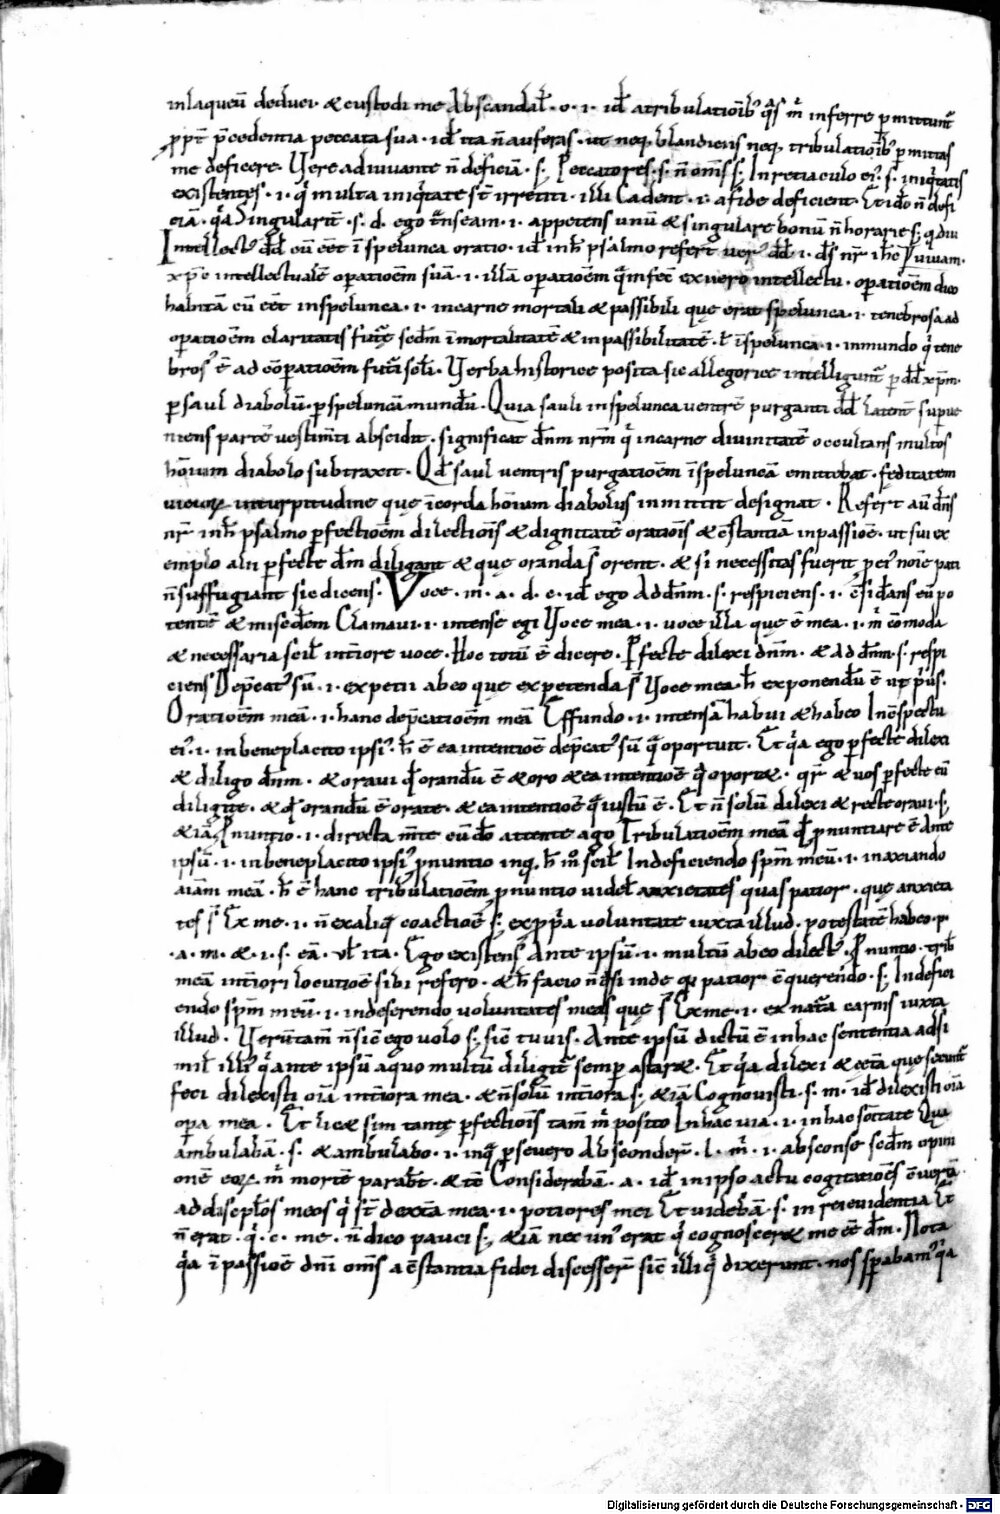 inlaqueū deduci · & custodi me Abscandal̄ · o · i · id̄ atribulationib; q̄s m̄ inferre ꝑmittunt̄
ꝓpt̄ p̄cedentia peccata sua · id̄ ita n̄ auferas · ut neq; blandiens neq; tribulationib; ꝑmittas
me deficere · Vere adiuvante n̄ deficiā · s · Peccatores · s · n̄ om̄s s; In retiaculo ei; · s · iniq̄tatis
existentes · i · q̄ multa iniq̄tate st̄ irretiti · illi Cadent · i · a fide deficient · Et ido n̄ defi
ciā · q̄a Singularit̄ · s · d · ego · i · appetens unū & singulare bonū
Intellectus dd̄ cū eēt ī spelunca oratio · id̄ in h̄ psalmo refert̄ ver; dd̄ · i · dn̄s nr̄ ih̄c
xp̄c intellectualē oꝑationē suā · i · illā oꝑationē ex vero intellectu · oꝑationē dico
habitā cū eēt in spelunca · i · in carne mortali & passibili quę erat spelunca · i · tenebrosa ad
oꝑationē claritatis futurę secd̄m īmortalitatē & inpassibilitatē · ł ī spelunca · i · in mundo q̄ tene
bros; ē ad cōꝑationē futuri sc̄li · Verba historięe posita sic allegorice intelligunt̄ ꝑ dd̄ xp̄m ·
ꝑ saul diabolū · ꝑ speluncā mundū · Quia sauli in spelunca ventrē purganti dd̄ latent̄ supue
niens partē vestim̄ti abscidit · significat dn̄m nr̄m q̄ in carne divinitatē occultans multos
hōinum diabolo subtraxit · Qd̄ saul ventris purgationē ī speluncā emittebat · fęditatem
vicioꝝ in turpitudine quę ī corda hōium diabolus inmittit designat · Refert aū dn̄s
nr̄ in h̄ psalmo ꝑfectionē dilectiōis & dignitatē oratiōis & cōstantiā in passiōe · ut sui ex
emplo alii ꝑfecte dn̄m diligant & quę oranda st̄ orent · & si necessitas fuerit ꝑ ei; nōīe pati
n̄ suffugiant sic dicens · Voce · m · a · d · c · id̄ ego Ad dn̄m · s · respiciens · i · cōsid̄ans eū po
tentē & misedēm Clamavi · i · intense egi Voce mea · i · voce illa quę ē mea · i · m̄ cōmoda
& necessaria scil̄ int̄iore voce · Hoc totū ē dicere · Perfecte dilexi dn̄m · & ad dn̄m · s · respi
ciens Dep̄cat; sū · i · expetii ab eo quę expetenda st̄ Voce mea · h̄ exponendū ē ut p̄us ·
Orationē meā · i · hanc dep̄cationē meā Effundo · i · intensā habui & habeo In cōspectu
ei; · i · in beneplacito ipsi; · h̄ ē ea intentionē dep̄cat; sū q̄ oportuit · Et q̄a ego ꝑfectē dilexi
& diligo dn̄m · & oravi qd̄ orandū ē & oro & ea intentiōe q̄ oport& · qr̄ & vos ꝑfecte eū
diligite · & qd̄ orandū ē orate · & ea intentiōe q̄ iustū ē · Et n̄ solū dilexi & recte oravi · s;
& iā Pnuntio · i · directa m̄te eūdo attente ago Tribulationē meā qd̄ ꝓnuntiare ē Ante
ipsū · i · in beneplacito ipsi; ꝓnuntio inq; h̄ m̊ scil̄ In deficiendo sp̄m meū · i · in axiando
aīam meā · h̄ ē hanc tribulationē ꝓnuntio videl̄ anxietates quas patior · quę anxieta
tes st̄ Ex me · i · n̄ ex aliq̄ coactiōe s; ex ꝓp̄a voluntate iuxta illud · potestatē habeo · p̄
· a · m · & · i · s · eā · vl̄ ita · Ego existens Ante ipsū · i · multū ab eo dilect; · Pnuntio · trib̄
meā int̄iori locutiōe sibi refero · & h̄ facio inde patior ē querendo · s · In defici
endo sp̄m meū · i · in deserendo voluntates meas quę st̄ Ex me · i · ex nat̄a carnis iuxta
illud · Verūtam̄ n̄ sic ego volo s; sic tu vis · Ante ipsū dictū ē in hac sententia adsi
mil̄ illi; q̄ ante ipsū a quo multū diligit̄ semꝑ astar& · Et q̄a dilexi & cet̄a quę secunt̄
feci dilexisti oīa int̄iora mea · & n̄ solū int̄iora s; & iā Cognovisti · s · m · id̄ dilexisti oīa
oꝑa mea · Et lic& sim tantę ꝑfectiōis tam̄ m̄ posito In hac via · i · in hac sōtate Qua
ambulabā · s · & ambulabo · i · inq̄ ꝑsevero Absconder̄ · l · m̄ · i · absconse secd̄m opini
onē eoꝝ m̄ mortē parabt̄ · & tē Considerabā · a · id̄ in ipso actu cogitatiōes cōverti
ad discipłos meos q̄ st̄ dext̄a mea · i · potiores mei Et videbā · s · in rei evidentia Et
n̄ erat · q̄ · c · me · n̄ dico pauci s; & iā nec un; erat q̄ cognoscer& me eē dn̄m · Nota
q̄a ī passiōe dn̄i om̄s a cōstantia fidei discesser̄ sic̄ illi q̄ dixerunt · nos sꝑabam; q̄a
Digitalisierung gefördert durch die Deutsche Forschungsgemeinschaft - DFG